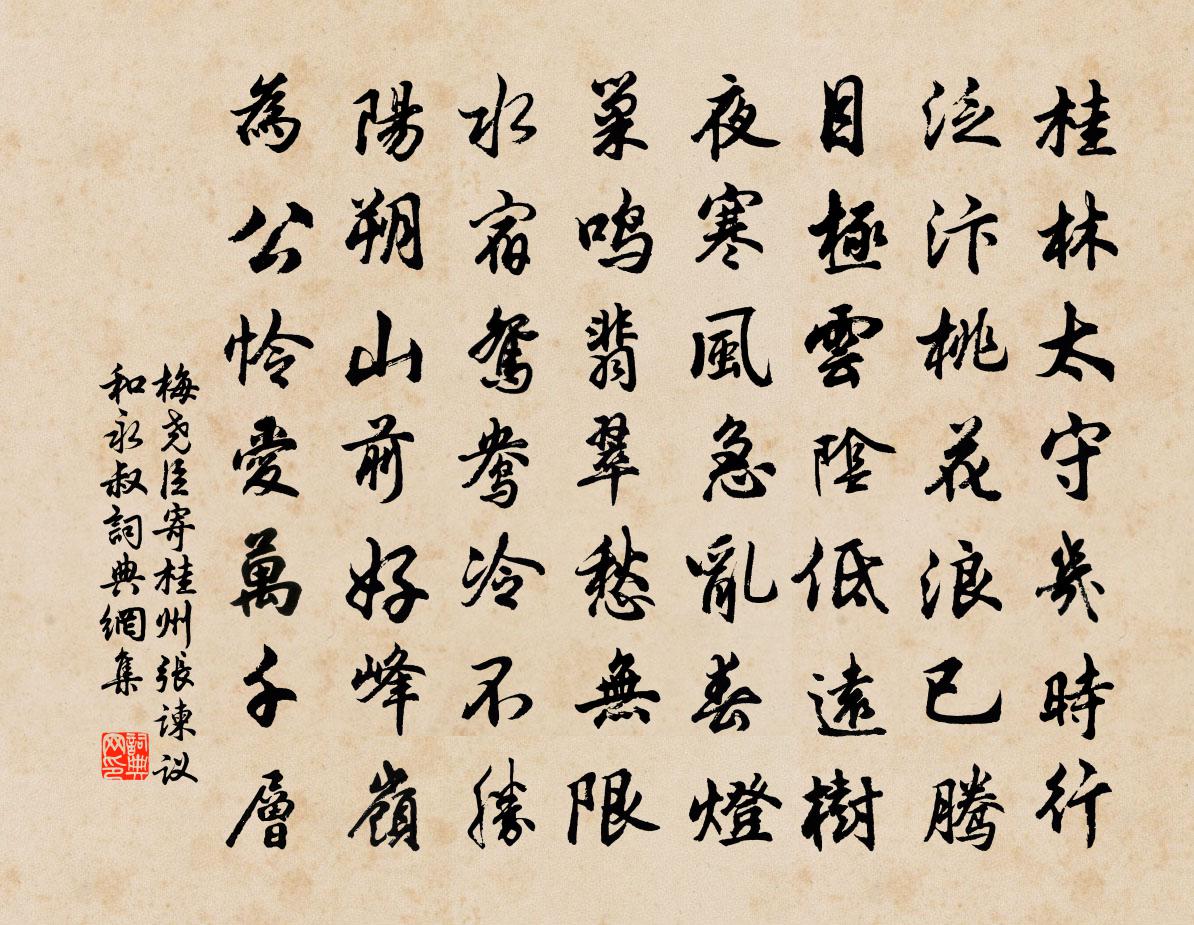 桂林太守幾時行
泛汴桃花浪已騰
目極雲陰低遠樹
夜寒風急亂春燈
巢鳴翡翠愁無限
水宿鴛鴦冷不勝
陽朔山前好峰嶺
為公憐愛萬千層
梅尧臣寄桂州張諫议
和永叔詞典網集
詞典网印